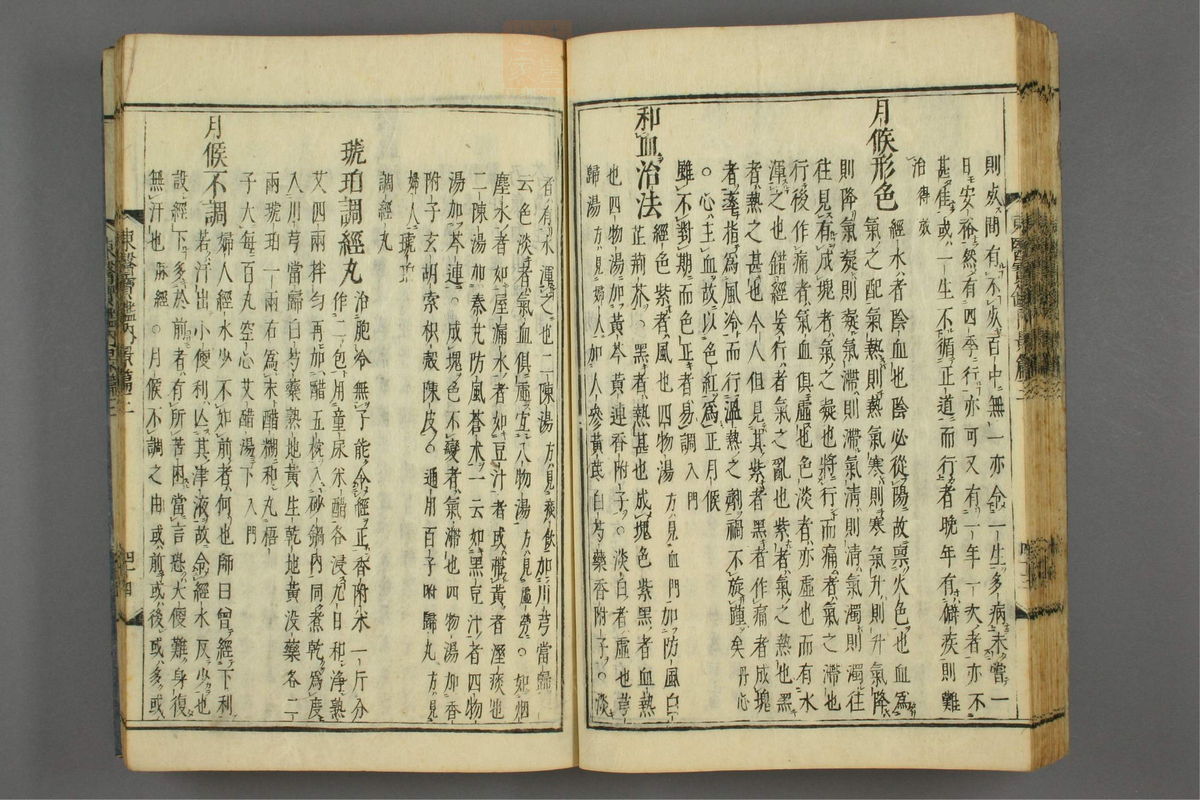 則失間有不以百中無一亦令一生多病未嘗一
日安裕然有四季一行亦可又有一年一次者亦不
甚崔或一生不循正道而行者晚年有癖疾則難
治得效
月候形色
經水者陰血也陰必從陽故禀火色也血為
氣之配氣熱則熱氣寒則寒氣升則升氣降
則降氣凝則凝氣滯則滯氣清則清氣濁則濁往
往見有成塊者氣之凝也將行而痛者氣之滯也
行後作痛者氣血俱虛也色淡者亦虛也而有水
渾之也錯經妄行者氣之亂也紫者氣之熱也黑
者熱之甚也今人但見其紫者黑者作痛者成塊
者率指為風冷而行溫熱之劑禍不旋踵矣丹心
○心主血故以色紅為正月候
雖不對期而色正者易調入門
和血治法
經色紫者風也四物湯方見血門加防風白
芷荊芥○黑者熱甚也成塊色紫黑者血熱
也四物湯加黃芩黃連香附子○淡白者虛也芎
歸湯方見婦人加人參黃芪白芍藥香附子○淡
者有水渾之也二陳湯方見痰飲加川芎當歸
云色淡者氣血俱虛宜八物湯方見虛勞○如烟
塵水者如屋漏水者如豆汁者或帶黃者溼痰也
二陳湯加秦艽防風蒼朮一云如黑豆汁者四物
湯加芩連○成塊色不變者氣滯也四物湯加香
附子玄胡索枳殼陳皮○通用百子附歸丸方見
婦人琥珀
調經丸
琥珀調經丸
治胞冷無子能令經正香附米一斤分
作二包用童尿米醋各浸九日和淨熟
艾四兩拌勻再加醋五椀入砂鍋內同煮乾為度
入川芎當歸白芍藥熟地黃生乾地黃沒藥各二
兩琥珀一兩右為末醋糊和丸梧
子大每百丸空心艾醋湯下入門
月候不調
婦人經水少不如前者何也師曰曾經下利
若汗出小便利亾其津液故令經水反少也
設經下多於前者有所苦困當言恐大便難身復
無汗也脉經○月候不調之由或前或後或多或
東醫寶鑑內景篇二
四十四